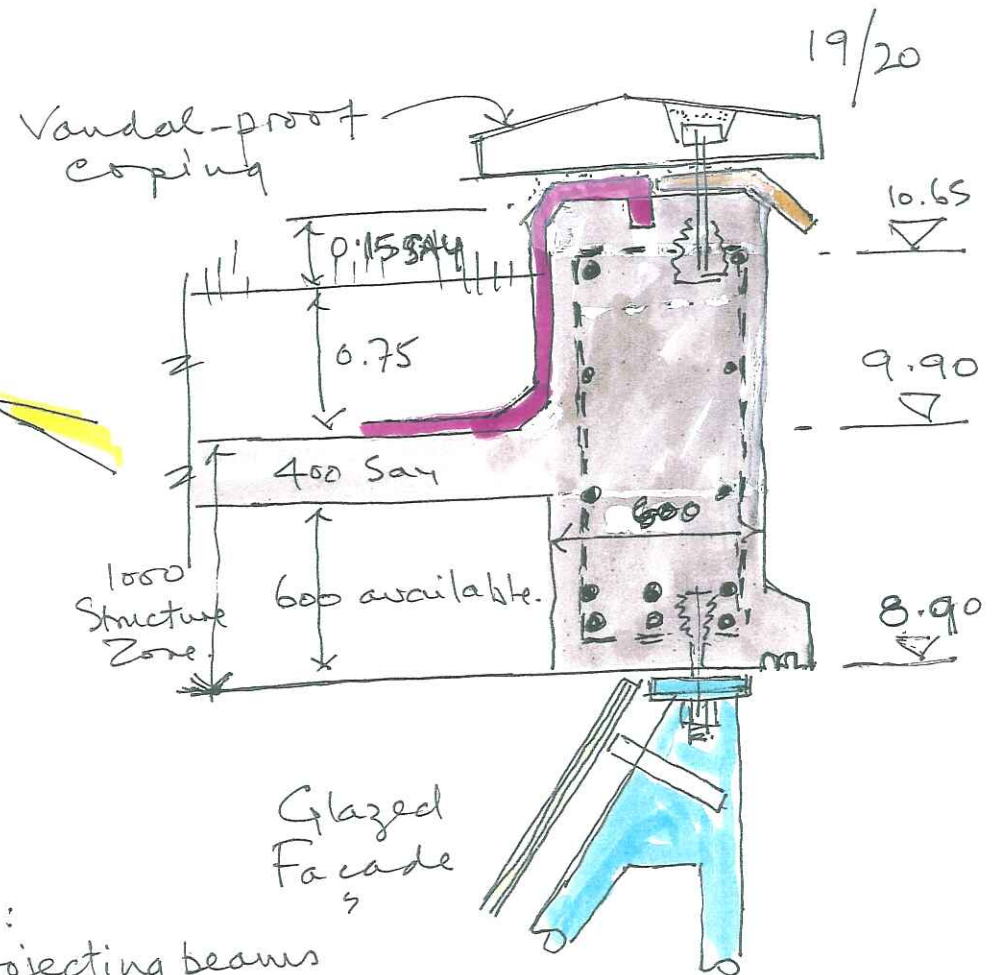 19/20
Vandal-proof
coping
10.65
0.15 say
0.75
9.90
400 Say
600
1000
Structure
Zone.
600 available.
8.90
Glazed
Facade
:
ojecting beams